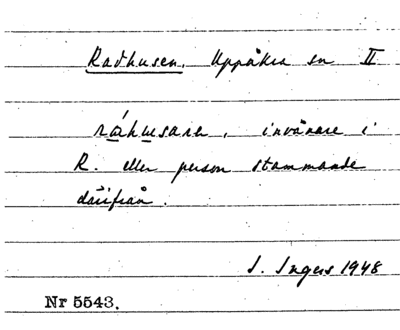 Radhusen. Uppåkra sn II
ráhusare, invånare i
R. eller person stammande
därifrån.
I. Ingers 1948
Nr 5543.